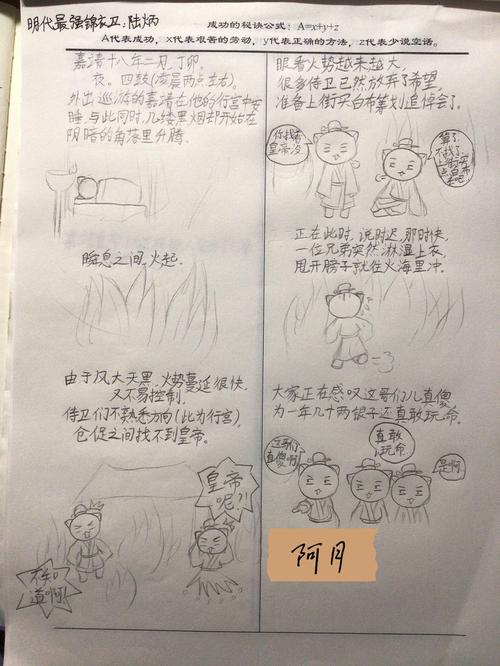 明代最强锦衣卫：陆炳
成功的秘诀公式：A=x+y+z
A代表成功，x代表艰苦的劳动，y代表正确的方法，z代表少说空话。
嘉靖十八年二月，丁卯
夜。四鼓(凌晨两点左右)。
外出巡游的嘉靖在他的行宫中安
睡，与此同时，几缕黑烟却开始在
阴暗的角落里升腾。
瞬息之间，火起。
由于风大天黑，火势蔓延很快
又不易控制，
侍卫们不熟悉方向(此为行宫)，
仓促之间找不到皇帝。
皇帝
呢?!
不知
道啊!
眼看火势越来越大，
很多侍卫已然放弃了希望，
准备上街买白布筹划追悼会了。
你找着
皇帝没
算了
不找了，
上街买
点白布
去吧
正在此时，说时迟，那时快，
一位兄弟突然淋湿上衣，
甩开膀子就往火海里冲。
大家正在感叹这哥们儿真傻
为一年几十两银子还真敢玩命。
这哥们
真傻啊
真敢
玩命
是啊
阿月